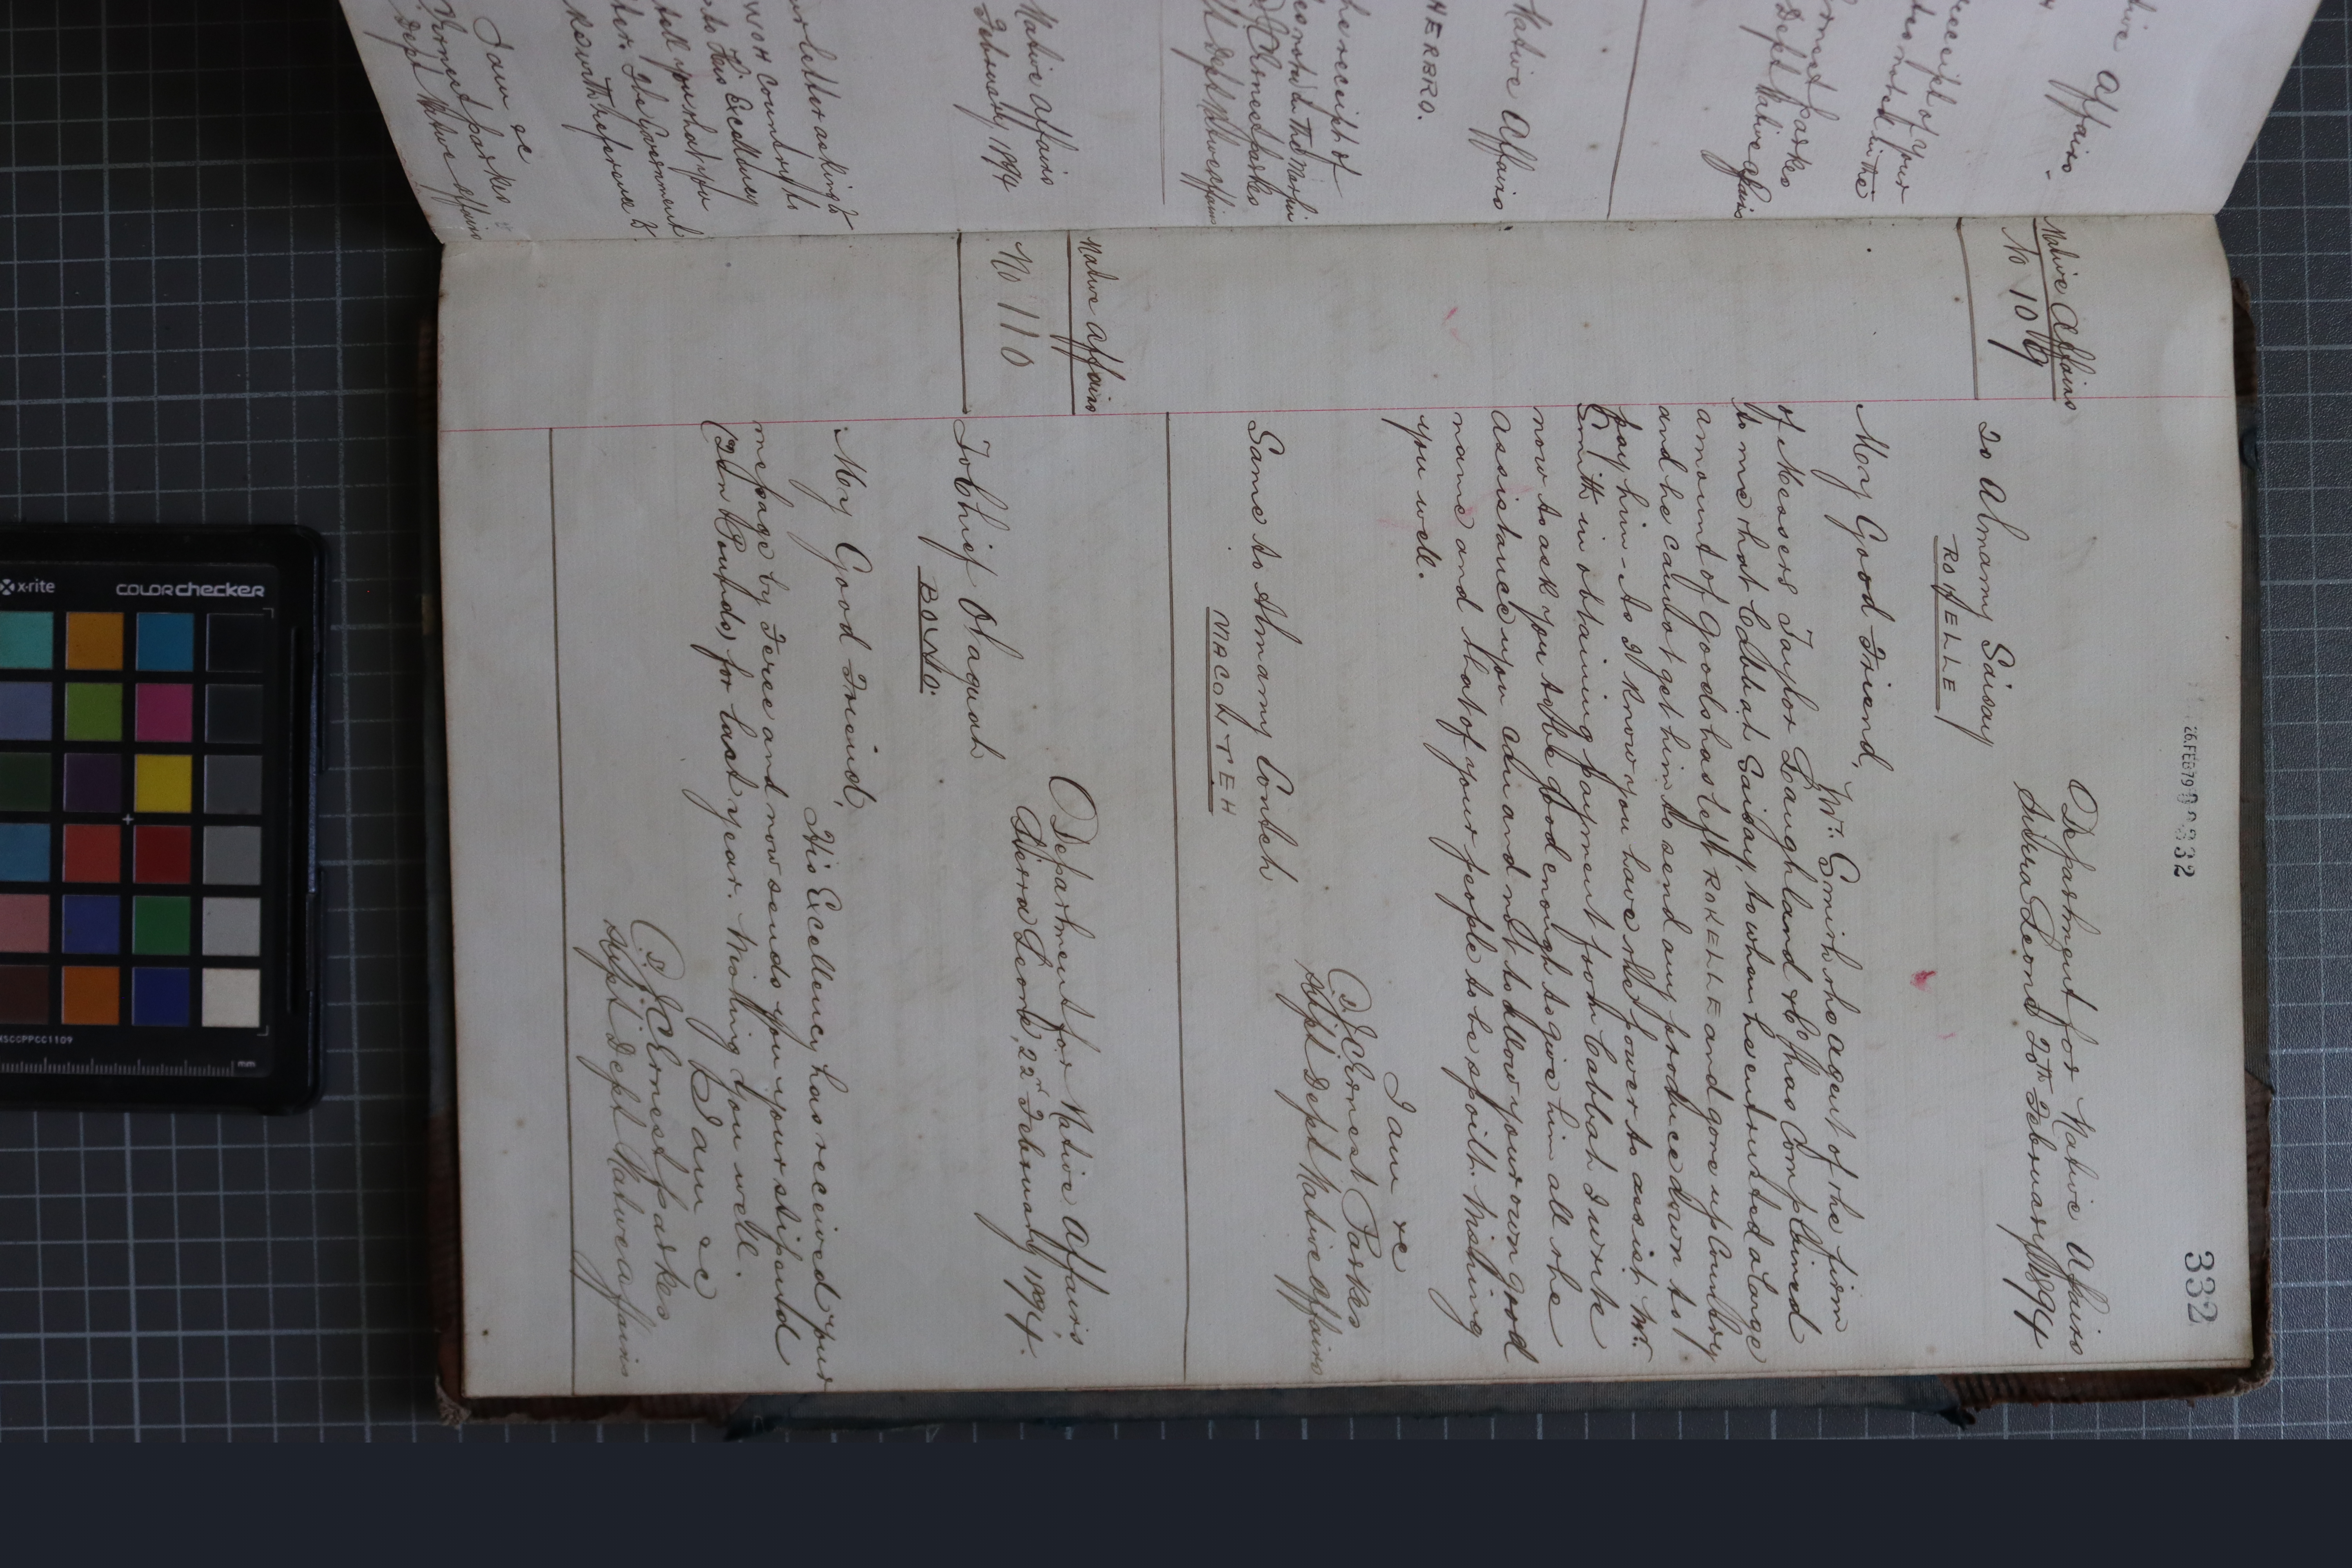 332
26.FEB79 00332
Native Affairs
No 109
Department for Native Affairs
Sierra Leone 20th February 1894
To Almamy Saisay
ROKELLE
My Good Friend,
Mr. Smith the agent of the firm
of Messers Taylor Laughland & Co has complained
to me that Cabbah Saisay, to whom he entrusted a large
amount of goods has left ROKELLE and gone up Country
and he cannot get him to send any produce down to
pay him - As I know you have the power to assist Mr.
Smith in obtaining payment from Cabbah I write
now to ask you to be good enough to give him all the
assistance you can and not to allow your own good
name and that of your people to be spoilt. Wishing
you well.
I am &c
J C Ernest Parkes
Supt Dept Native Affairs
Same to Almamy Conteh
MACOLTEH
Native Affairs
No 110
Department for Native Affairs,
Sierra Leone, 22d February 1894.
To Chief
My Good Friend,
His Excellency has received your
message by and now sends you your stipend
(Ten Pounds) for last year. Wishing you well.
I am &c
J C Ernest Parkes
Supt Dept Native Affairs
Native Affairs
receipt of your
Dept Native Affairs
Native Affairs
HERBRO.
the receipt of
J C Ernest Parkes
Dept Native Affairs
Native Affairs
February 1894
letter asking
country to
to His Excellency
tell you that you
the Government
with reference to
I am &c
Ernest Parkes
Dept Native Affairs
x-rite
COLORchecker
MSCCPPCC1109
mm